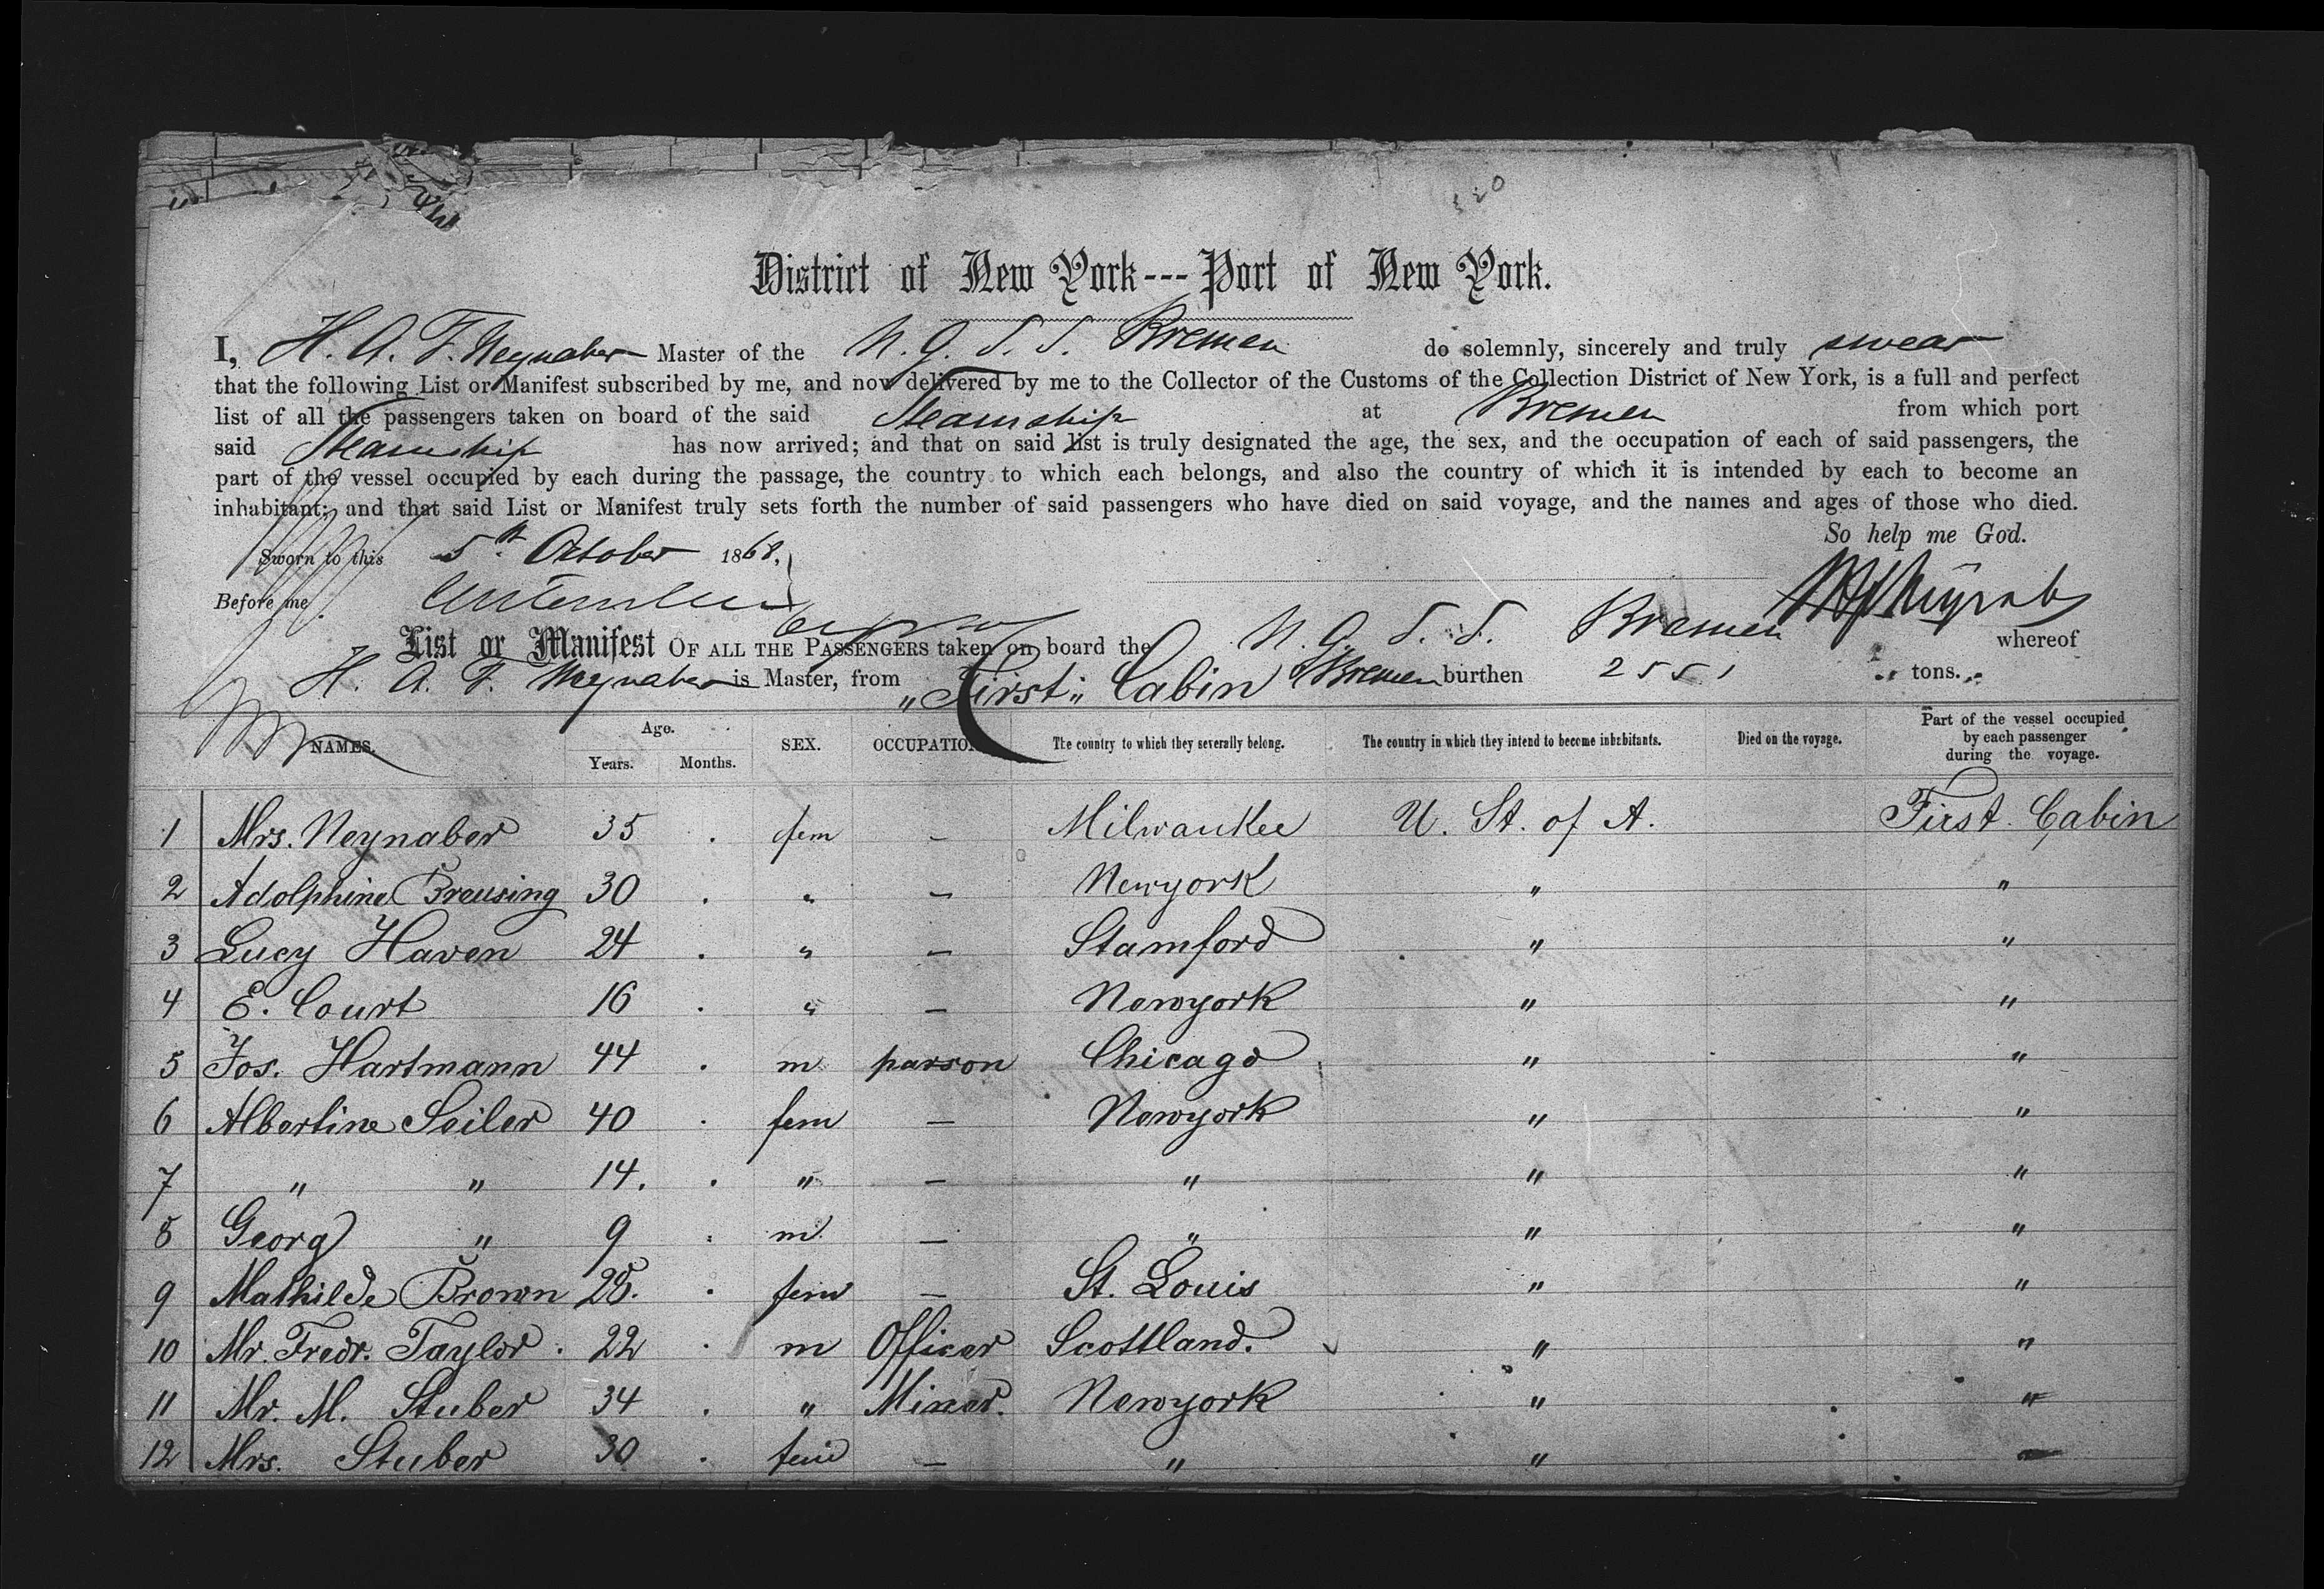 District of New York --- Port of New York.
I, H. A. F. Neynaber Master of the N. G. S. S. Bremen do solemnly, sincerely and truly swear
that the following List or Manifest subscribed by me, and now delivered by me to the Collector of the Customs of the Collection District of New York, is a full and perfect
list of all the passengers taken on board of the said Steamship at Bremen from which port
said Steamship has now arrived; and that on said list is truly designated the age, the sex, and the occupation of each of said passengers, the
part of the vessel occupied by each during the passage, the country to which each belongs, and also the country of which it is intended by each to become an
inhabitant; and that said List or Manifest truly sets forth the number of said passengers who have died on said voyage, and the names and ages of those who died.
So help me God.
Sworn to this 5th October 1868.
Before me
List or Manifest OF ALL THE PASSENGERS taken on board the N. G. S. S. Bremen whereof
H. A. F. Neynaber is Master, from Bremen burthen 2551 tons.
"First" Cabin
NAMES. Age. Years. Months. SEX. OCCUPATION The country to which they severally belong. The country in which they intend to become inhabitants. Died on the voyage. Part of the vessel occupied by each passenger during the voyage.
1 Mrs. Neynaber 35 . fem — Milwaukee U. St. of A. First Cabin
2 Adolphine Breusing 30 . " — Newyork " "
3 Lucy Haven 24 . " — Stamford " "
4 E. Court 16 . " — Newyork " "
5 Jos. Hartmann 44 . m parson Chicago " "
6 Albertine Seiler 40 . fem — Newyork " "
7 " " 14. . " — " " "
8 Georg " 9 . m — " " "
9 Mathilde Brown 28. . fem — St. Louis " "
10 Mr. Fredr. Taylor . 22 . m Officer Scottland. " "
11 Mr. M. Stuber 34 . " Miner. Newyork " "
12 Mrs. Stuber 30 . fem — " " "